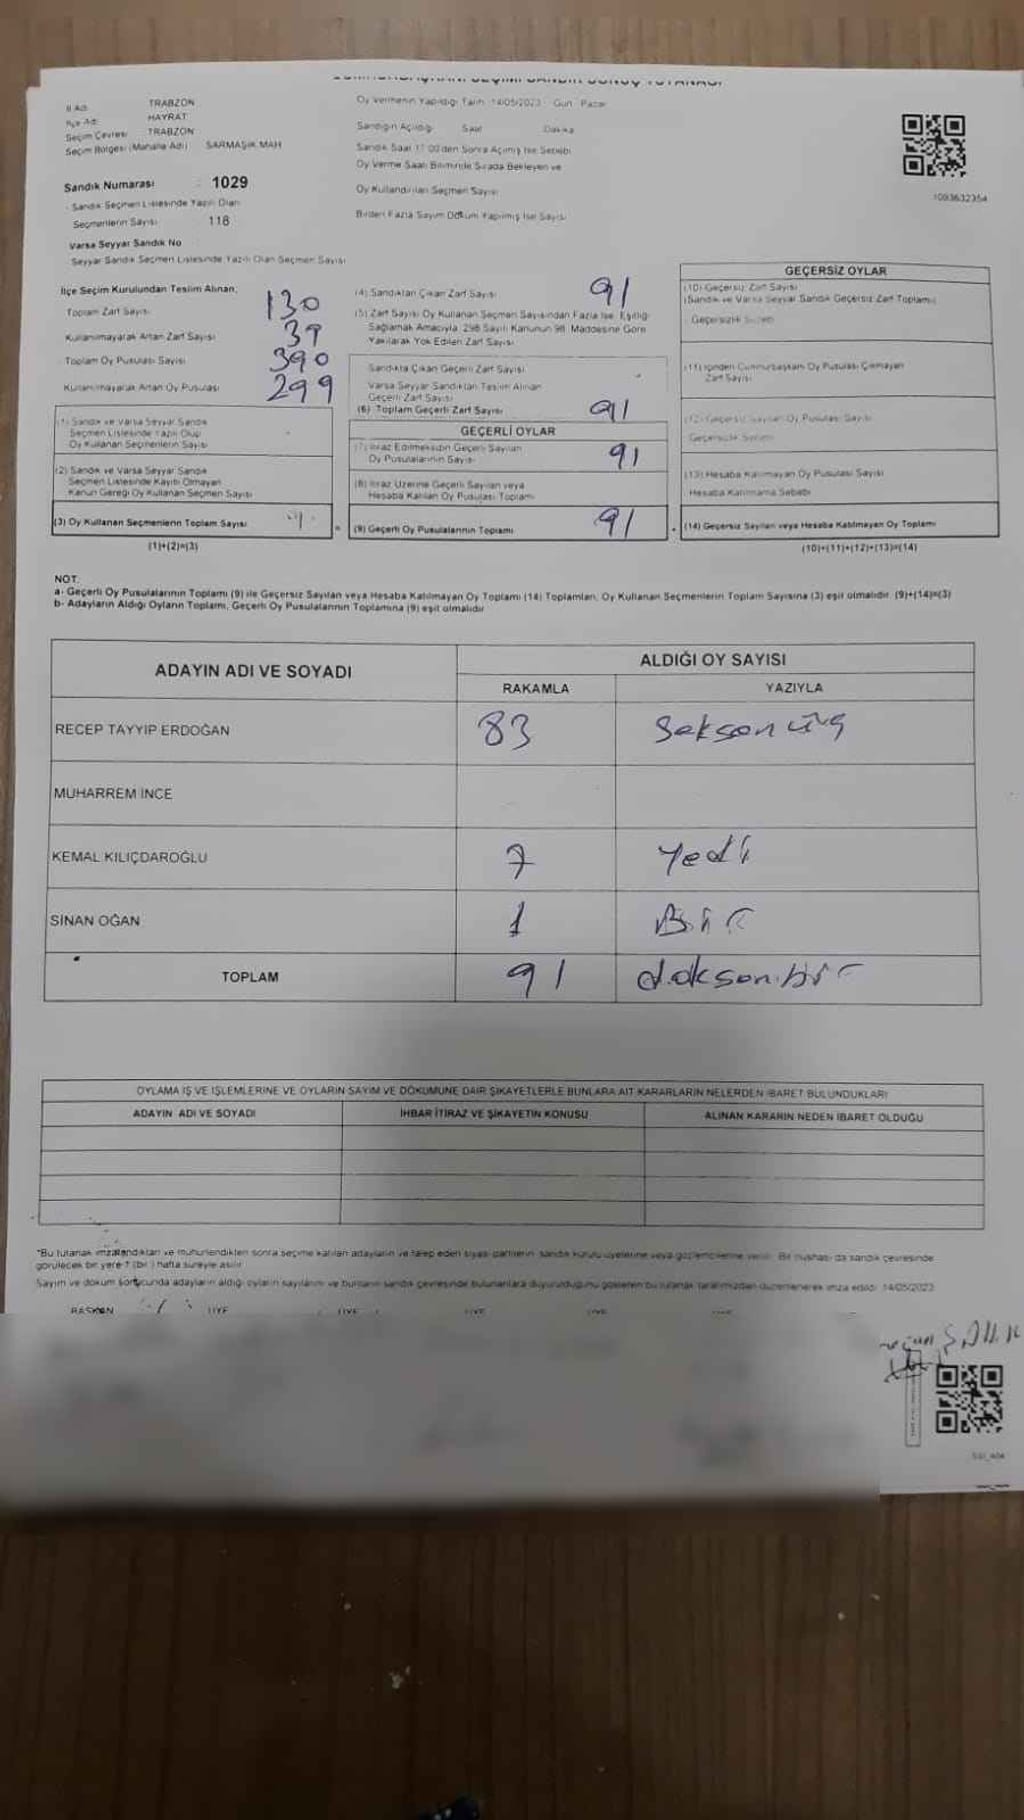 İl Adı TRABZON
İlçe Adı HAYRAT
Seçim Çevresi TRABZON
Seçim Bölgesi (Mahalle Adı) SARMAŞIK MAH
Sandık Numarası : 1029
Sandık Seçmen Listesinde Yazılı Olan
Seçmenlerin Sayısı 118
Varsa Seyyar Sandık No
Seyyar Sandık Seçmen Listesinde Yazılı Olan Seçmen Sayısı
Oy Vermenin Yapıldığı Tarih 14/05/2023 Gün Pazar
Sandığın Açıldığı Saat Dakika
Sandık Saat 17:00'den Sonra Açılmış İse Sebebi
Oy Verme Saati Bitiminde Sırada Bekleyen ve
Oy Kullandırılan Seçmen Sayısı
Birden Fazla Sayım Döküm Yapılmış İse Sayısı
1093632354
İlçe Seçim Kurulundan Teslim Alınan;
Toplam Zarf Sayısı 130
Kullanılmayarak Artan Zarf Sayısı 39
Toplam Oy Pusulası Sayısı 390
Kullanılmayarak Artan Oy Pusulası 299
(1) Sandık ve Varsa Seyyar Sandık
Seçmen Listesinde Yazılı Olup
Oy Kullanan Seçmenlerin Sayısı
(2) Sandık ve Varsa Seyyar Sandık
Seçmen Listesinde Kayıtlı Olmayan
Kanun Gereği Oy Kullanan Seçmen Sayısı
(3) Oy Kullanan Seçmenlerin Toplam Sayısı
(1)+(2)=(3)
(4) Sandıktan Çıkan Zarf Sayısı 91
(5) Zarf Sayısı Oy Kullanan Seçmen Sayısından Fazla İse, Eşitliği
Sağlamak Amacıyla, 298 Sayılı Kanunun 98. Maddesine Göre
Yakılarak Yok Edilen Zarf Sayısı
Sandıkta Çıkan Geçerli Zarf Sayısı
Varsa Seyyar Sandıktan Teslim Alınan
Geçerli Zarf Sayısı
(6) Toplam Geçerli Zarf Sayısı 91
GEÇERLİ OYLAR
(7) İtiraz Edilmeksizin Geçerli Sayılan
Oy Pusulalarının Sayısı 91
(8) İtiraz Üzerine Geçerli Sayılan veya
Hesaba Katılan Oy Pusulası Toplamı
(9) Geçerli Oy Pusulalarının Toplamı 91
GEÇERSİZ OYLAR
(10) Geçersiz Zarf Sayısı
(Sandık ve Varsa Seyyar Sandık Geçersiz Zarf Toplamı)
Geçersizlik Sebebi
(11) İçinden Cumhurbaşkanı Oy Pusulası Çıkmayan
Zarf Sayısı
(12) Geçersiz Sayılan Oy Pusulası Sayısı
Geçersizlik Sebebi
(13) Hesaba Katılmayan Oy Pusulası Sayısı
Hesaba Katılmama Sebebi
(14) Geçersiz Sayılan veya Hesaba Katılmayan Oy Toplamı
(10)+(11)+(12)+(13)=(14)
NOT:
a- Geçerli Oy Pusulalarının Toplamı (9) ile Geçersiz Sayılan veya Hesaba Katılmayan Oy Toplamı (14) Toplamları, Oy Kullanan Seçmenlerin Toplam Sayısına (3) eşit olmalıdır. (9)+(14)=(3)
b- Adayların Aldığı Oyların Toplamı, Geçerli Oy Pusulalarının Toplamına (9) eşit olmalıdır.
ADAYIN ADI VE SOYADI ALDIĞI OY SAYISI
RAKAMLA YAZIYLA
RECEP TAYYİP ERDOĞAN 83 Seksen üç
MUHARREM İNCE
KEMAL KILIÇDAROĞLU 7 Yedi
SİNAN OĞAN 1 Bir
TOPLAM 91 doksan bir
OYLAMA İŞ VE İŞLEMLERİNE VE OYLARIN SAYIM VE DÖKÜMÜNE DAİR ŞİKAYETLERLE BUNLARA AİT KARARLARIN NELERDEN İBARET BULUNDUKLARI
ADAYIN ADI VE SOYADI İHBAR İTİRAZ VE ŞİKAYETİN KONUSU ALINAN KARARIN NEDEN İBARET OLDUĞU
*Bu tutanak imzalandıktan ve mühürlendikten sonra seçime katılan adayların ve talep eden siyasi partilerin sandık kurulu üyelerine veya gözlemcilerine verilir. Bir nüshası da sandık çevresinde
görülecek bir yere 1 (bir) hafta süreyle asılır.
Sayım ve döküm sonucunda adayların aldığı oyların sayılarını ve bunların sandık çevresinde bulunanlara duyurulduğunu gösteren bu tutanak tarafımızdan düzenlenerek imza edildi. 14/05/2023
BAŞKAN ÜYE ÜYE ÜYE ÜYE ÜYE